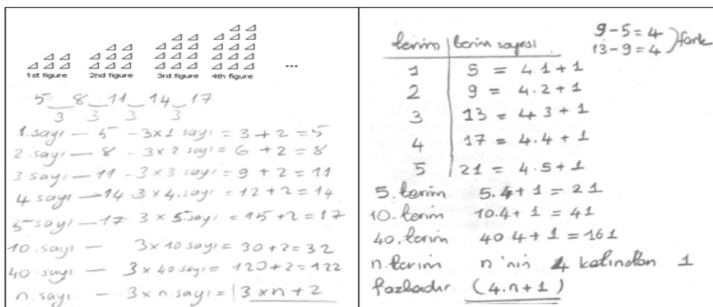 1st figure 2nd figure 3rd figure 4th figure ...
5 8 11 14 17
3 3 3 3
1.sayı — 5 -3x1 sayı = 3+2=5
2.sayı — 8 -3x2 sayı = 6 +2=8
3 sayı — 11 - 3x3 sayı = 9+2=11
4 sayı — 14 3x4.sayı = 12+2=14
5 sayı — 17 3x5 sayı = 15+2=17
10.sayı — 3x10 sayı = 30+2=32
40.sayı — 3x40 sayı = 120+2=122
n.sayı — 3xn sayı = 3xn+2
9-5=4
13-9=4 fark
terim terim sayısı
1 5 = 4.1+1
2 9 = 4.2+1
3 13 = 4.3+1
4 17 = 4.4+1
5 21 = 4.5+1
5.terim 5.4+1=21
10.terim 10.4+1=41
40.terim 40 4+1=161
n.terim n'nin 4 katından 1
fazladır (4.n+1)